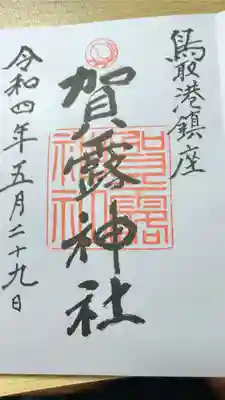 鳥取港鎮座
賀露神社
令和四年五月二十九日